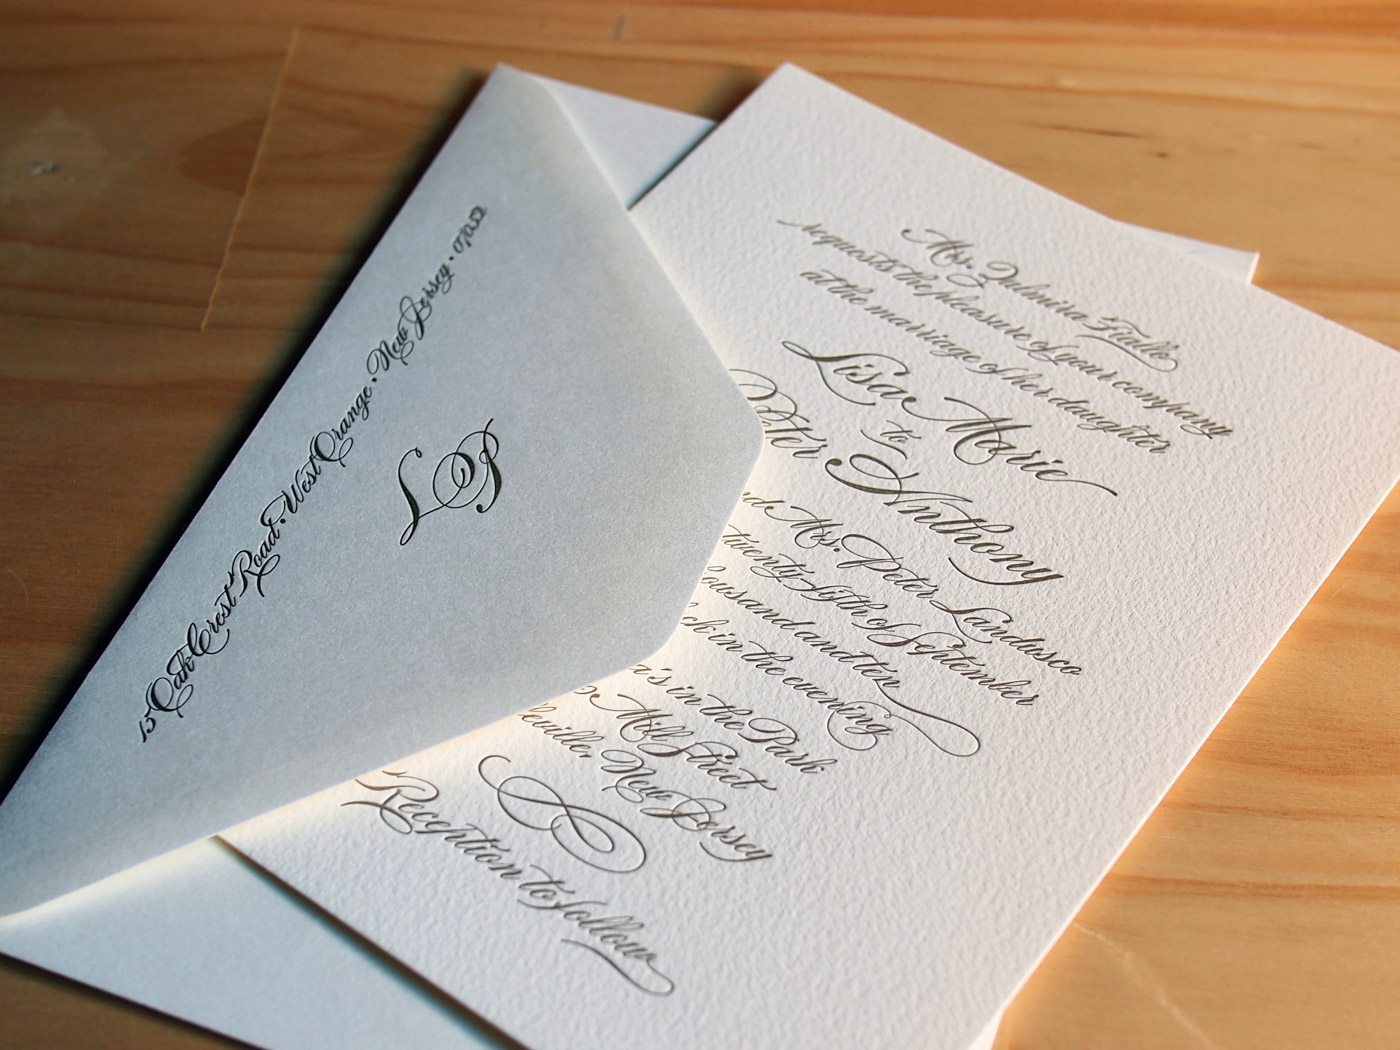 15 Oak Crest Road • West Orange • New Jersey • 07052
LP
Mrs. Zulmira Falle
requests the pleasure of your company
at the marriage of her daughter
Lisa Marie
to
Peter Anthony
Mrs. Peter Landusco
twenty fifth of September
and ten
in the evening
in the Park
Mill Street
New Jersey
Reception to follow